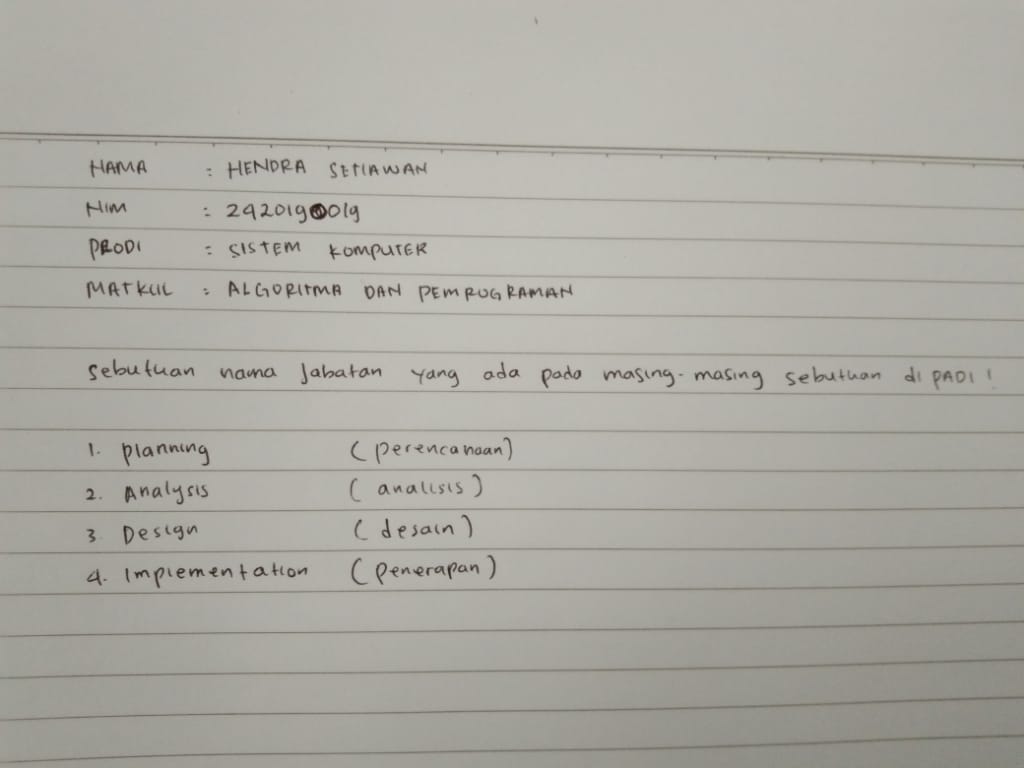 NAMA : HENDRA SETIAWAN
NIM : 242019019
PRODI : SISTEM KOMPUTER
MATKUL : ALGORITMA DAN PEMROGRAMAN
Sebutuan nama Jabatan yang ada pada masing-masing sebutuan di PADI!
1. Planning (perencanaan)
2. Analysis (analisis)
3. Design (desain)
4. Implementation (Penerapan)